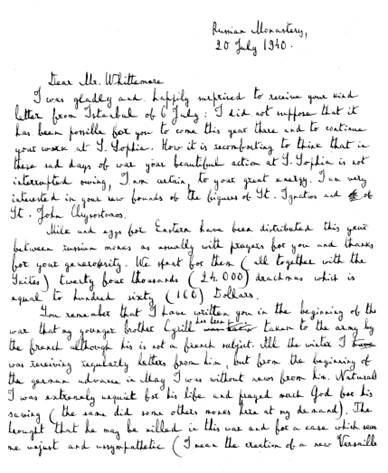 Russian Monastery,
20 July 1940.
Dear Mr. Whittemore
I was gladly and happily surprised to receive your kind
letter from Istanbul of 6 July: I did not suppose that it
has been possible for you to come this year there and to continue
your work at S. Sophia. How it is recomforting to think that in
these sad days of war your beautiful action at S. Sophia is not
interrupted owing, I am certain, to your great energy. I am very
interested in your new founds of the figures of St. Ignatios and of
St. John Chrysostomos.
Milk and eggs for Eastern have been distributed this year
between russian monks as usually with prayers for you and thanks
for your generosity. We spent for them (all together with the
Skites) twenty four thousands (24.000) drachmas which is
equal to hundred sixty (160) Dollars.
You remember that I have written you in the beginning of the
war that my younger brother Cyrill has been taken to the army by
the french although his is not a french subject. All the winter I
was receiving regularly letters from him, but from the beginning of
the german advance in May I was without news from him. Naturally
I was extremely unquiet for his life and prayed much God for his
saving (the same did some others monks here at my demand). The
thought that he may be killed in this war and for a case which seem
me unjust and unsympathetic (I mean the erection of a new Versaille